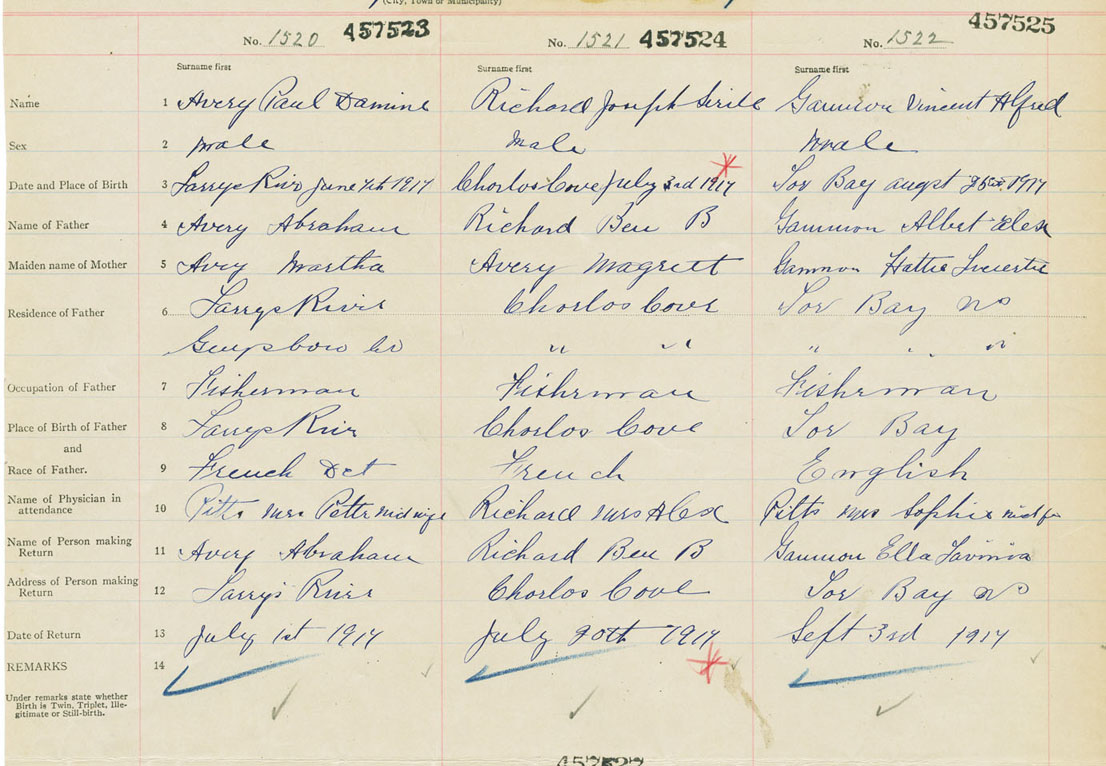 (City, Town or Municipality)
No. 1520 457523 No. 1521 457524 No. 1522 457525
Surname first Surname first Surname first
Name 1 Avery Paul Damine Richard Joseph Sirile Gammon Vincent Alfred
Sex 2 male male male
Date and Place of Birth 3 Larrys River June 7th 1917 Chorlos Cove July 3rd 1917 Tor Bay augst 1917
Name of Father 4 Avery Abraham Richard Ben B Gammon Albert alex
Maiden name of Mother 5 Avry Martha Avery Magrett Gammon Hattie
Residence of Father 6 Larrys River Chorlos Cove Tor Bay NS
Guysboro Co " " " " "
Occupation of Father 7 Fisherman Fisherman Fisherman
Place of Birth of Father 8 Larrys River Chorlos Cove Tor Bay
and
Race of Father. 9 French Det French English
Name of Physician in
attendance 10 Pitts Mrs Petter midwife Richard Mrs Alex Pitts Mrs Sophie
Name of Person making
Return 11 Avery Abraham Richard Ben B Gammon Ella Lavinia
Address of Person making
Return 12 Larrys River Chorlos Cove Tor Bay NS
Date of Return 13 July 1st 1917 July 20th 1917 Sept 3rd 1917
REMARKS 14
Under remarks state whether
Birth is Twin, Triplet, Ille-
gitimate or Still-birth.
457527